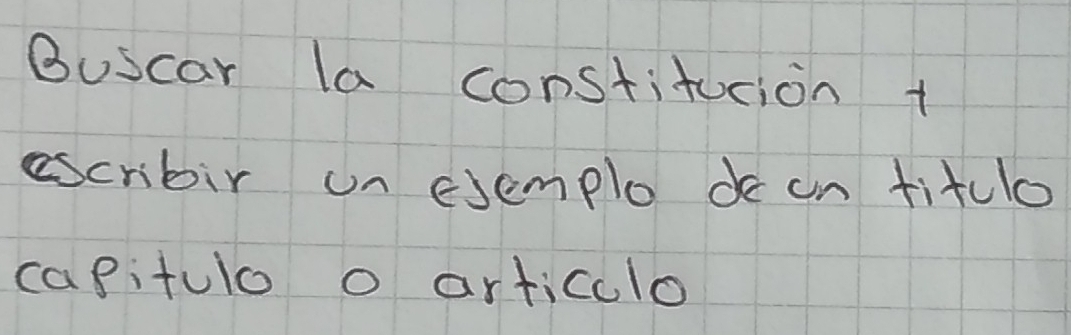 Buscar la constitución +
escribir un ejemplo de un titulo
capitulo o articulo